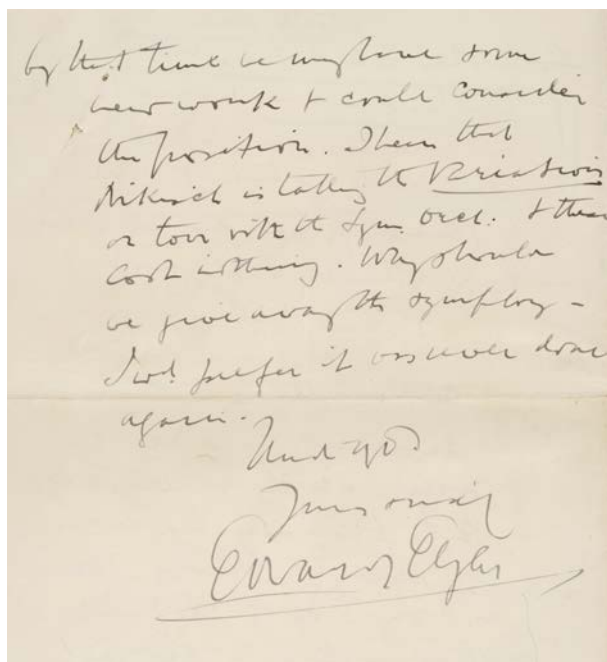 by that time we may have some
new work & could consider
the position. I hear that
Nikisch is taking the Variations
on tour with the Sym. Orch: & these
cost nothing. Why should
we give away the symphony –
I wd. prefer it was never done
again.
Yours
Edward Elgar